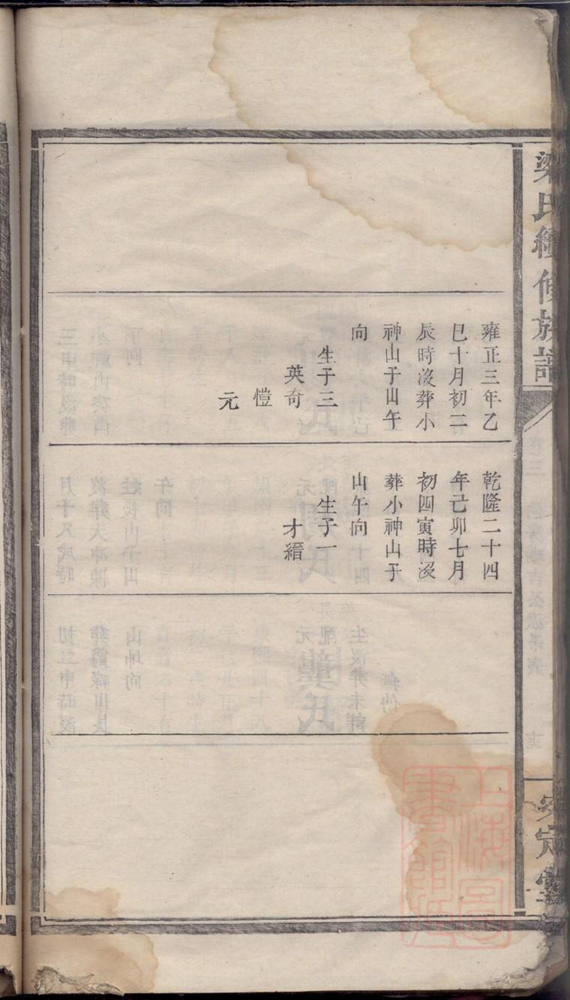 梁氏續修族譜
安定堂
雍正三年乙
巳十月初二
辰時沒葬小
神山子山午
向
生子三
英奇
愷
元
乾隆二十四
年己卯七月
初四寅時沒
葬小神山子
山午向
生子一
才縉